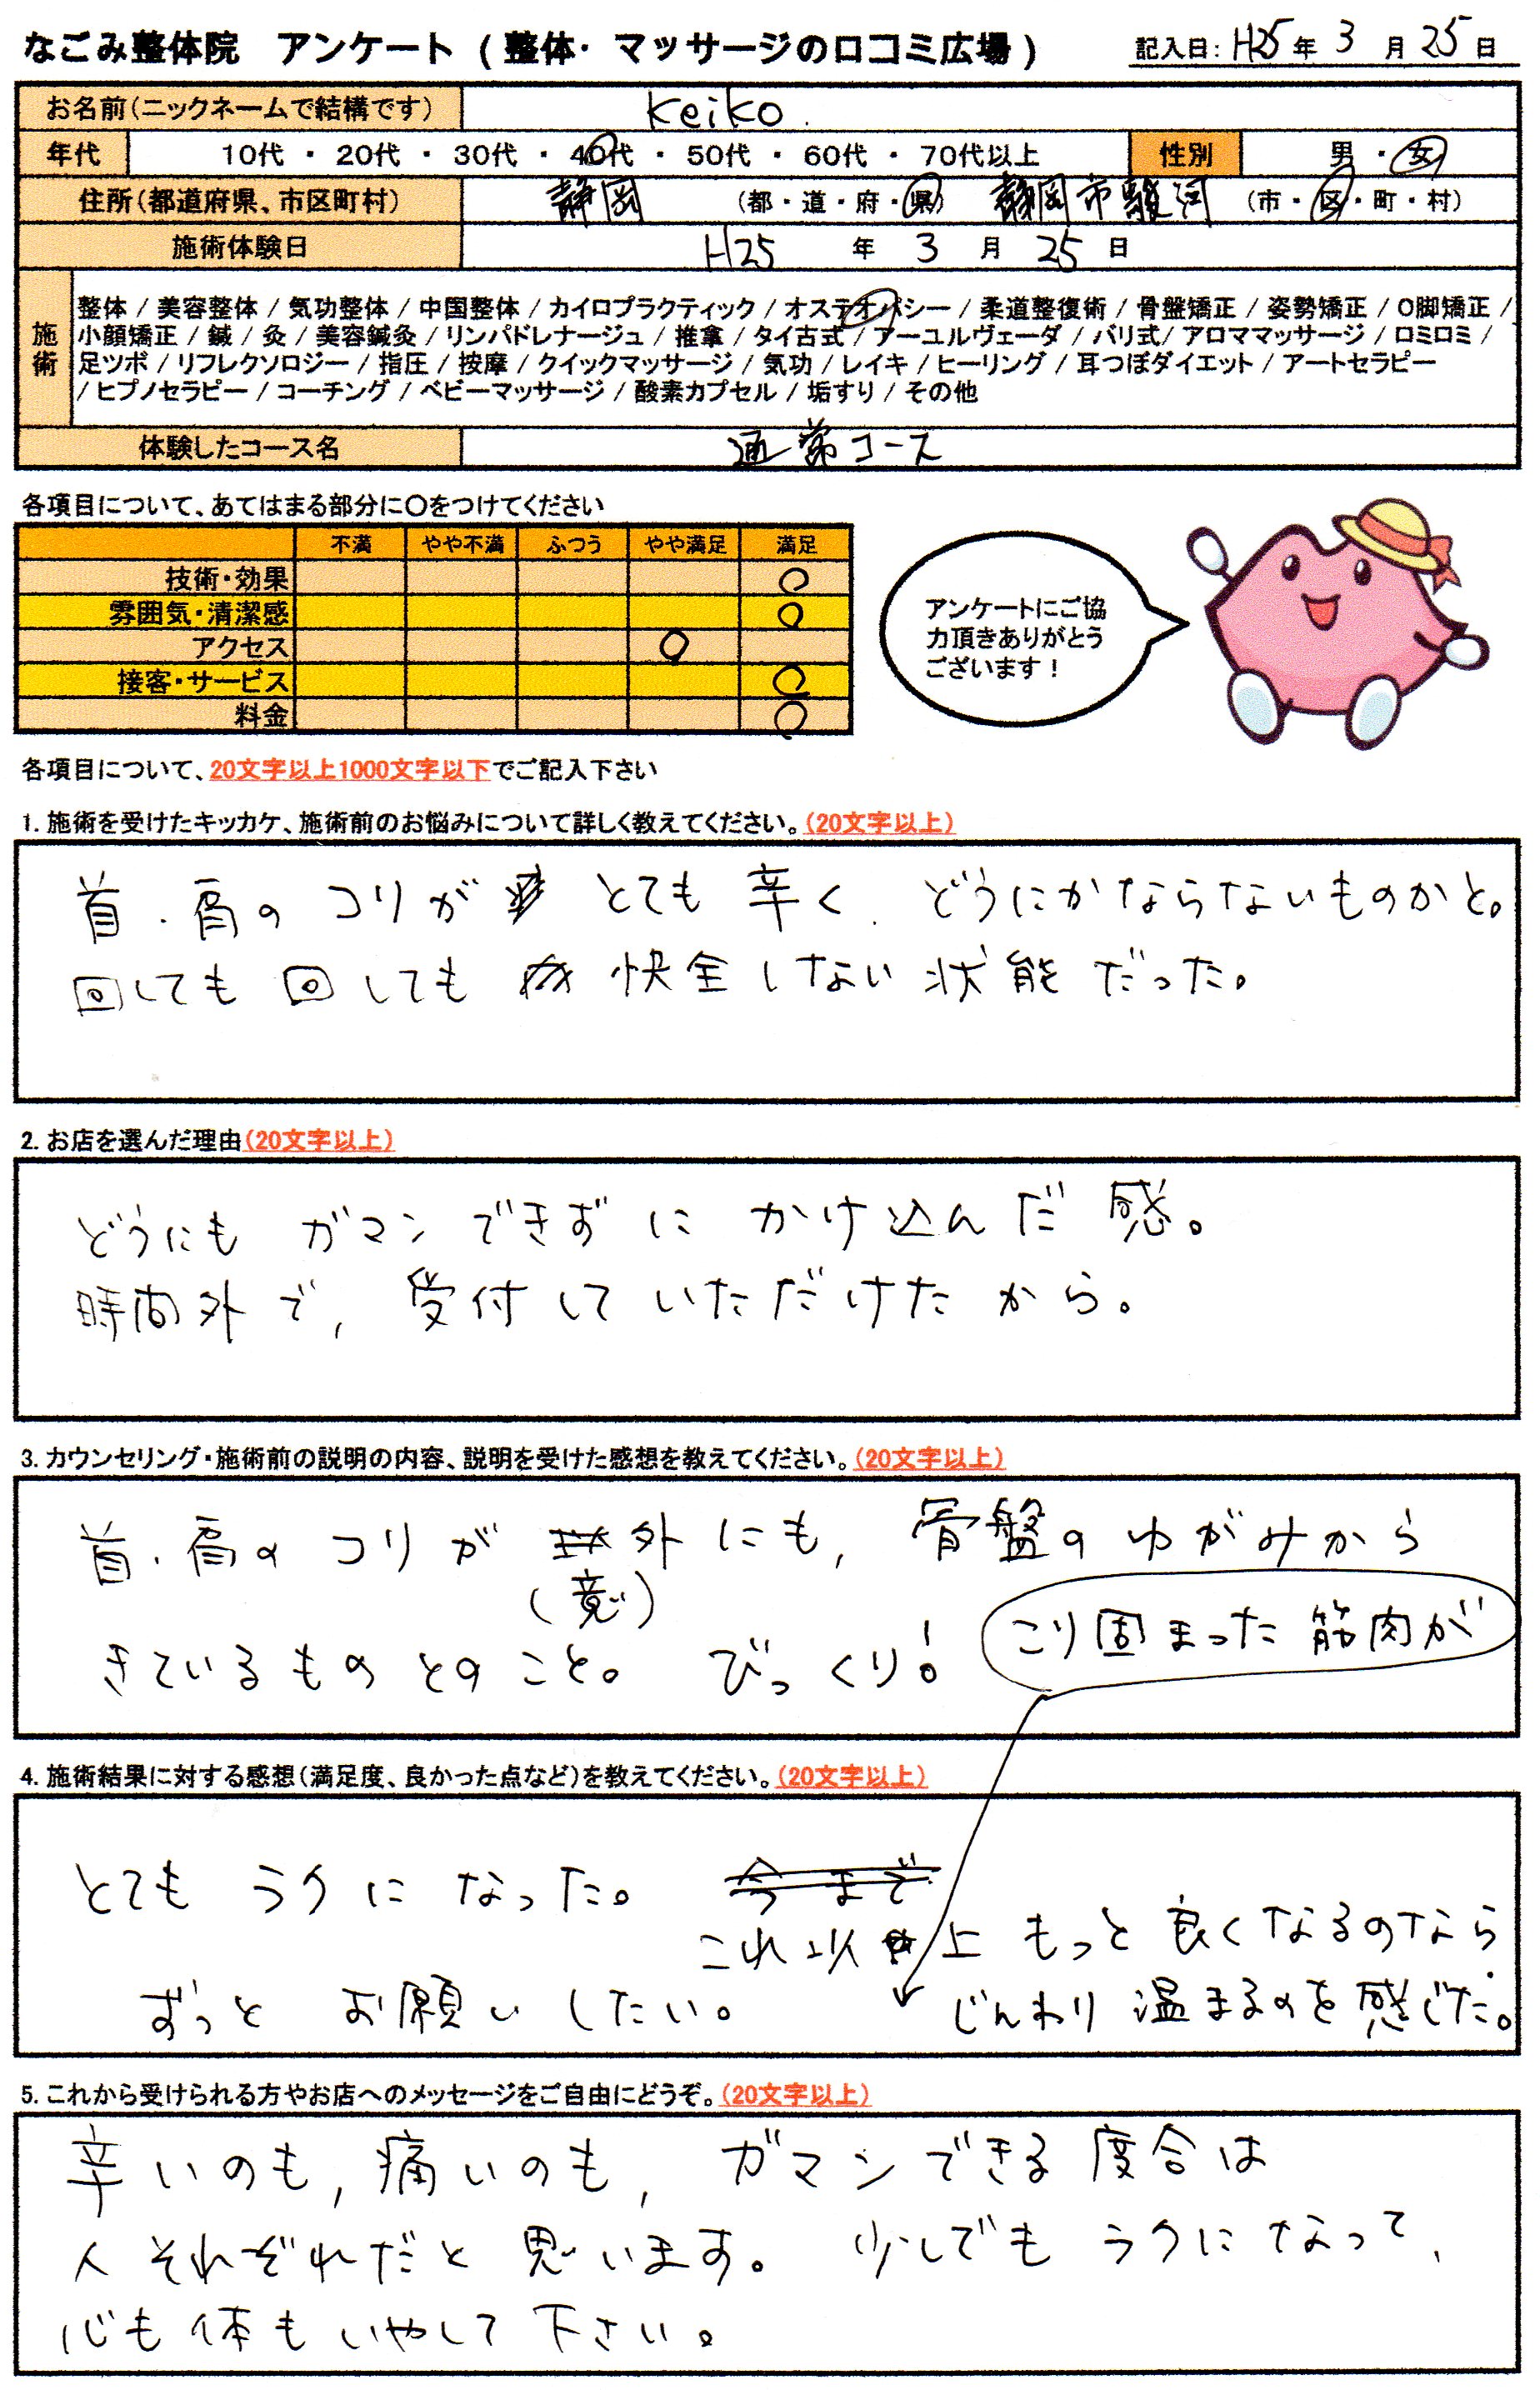 なごみ整体院 アンケート(整体・マッサージの口コミ広場)
記入日:H25年3月25日
お名前(ニックネームで結構です) keiko
年代 10代・20代・30代・40代・50代・60代・70代以上 性別 男・女
住所(都道府県、市区町村) 静岡 (都・道・府・県) 静岡市駿河 (市・区・町・村)
施術体験日 H25 年 3 月 25 日
施術
整体/美容整体/気功整体/中国整体/カイロプラクティック/オステオパシー/柔道整復術/骨盤矯正/姿勢矯正/O脚矯正/
小顔矯正/鍼/灸/美容鍼灸/リンパドレナージュ/推拿/タイ古式/アーユルヴェーダ/バリ式/アロママッサージ/ロミロミ/
足ツボ/リフレクソロジー/指圧/按摩/クイックマッサージ/気功/レイキ/ヒーリング/耳つぼダイエット/アートセラピー
/ヒプノセラピー/コーチング/ベビーマッサージ/酸素カプセル/垢すり/その他
体験したコース名 通常コース
各項目について、あてはまる部分に○をつけてください
不満 やや不満 ふつう やや満足 満足
技術・効果 ○
雰囲気・清潔感 ○
アクセス ○
接客・サービス ○
料金 ○
アンケートにご協
力頂きありがとう
ございます!
各項目について、20文字以上1000文字以下でご記入下さい
1. 施術を受けたキッカケ、施術前のお悩みについて詳しく教えてください。(20文字以上)
首・肩のコリが とても辛く、どうにかならないものかと。
回しても回しても 快全しない状能だった。
2. お店を選んだ理由(20文字以上)
どうにも ガマンできずに かけ込んだ感。
時間外で、受付していただけたから。
3. カウンセリング・施術前の説明の内容、説明を受けた感想を教えてください。(20文字以上)
首・肩のコリが 外にも、骨盤のゆがみから
(意)
きているものとのこと。 びっくり!
こり固まった筋肉が
4. 施術結果に対する感想(満足度、良かった点など)を教えてください。(20文字以上)
とても ラクに なった。 今まで
これ以上 もっと良くなるのなら
ずっと お願いしたい。
じんわり温まるのを感じた。
5. これから受けられる方やお店へのメッセージをご自由にどうぞ。(20文字以上)
辛いのも、痛いのも、ガマンできる度合は
人それぞれだと思います。 少しでもラクになって、
心も体もいやして下さい。